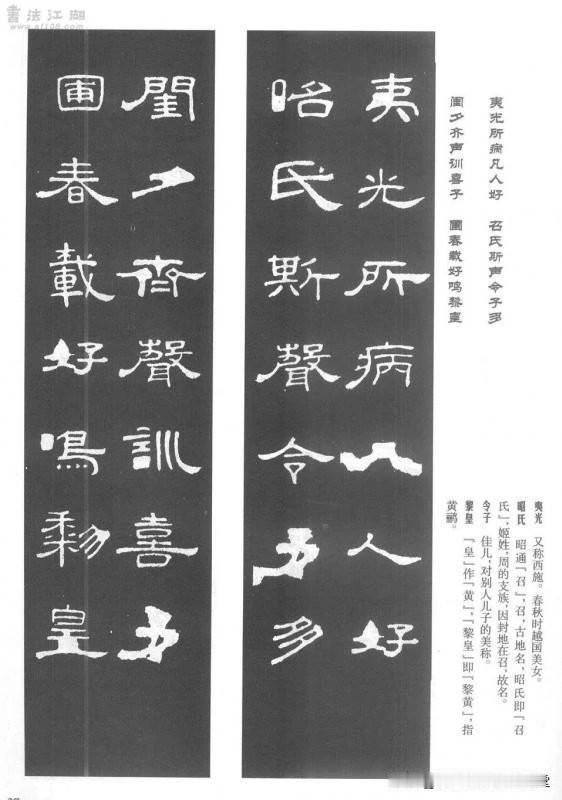 書法江湖
www.sf108.com
夷光所病凡人好 召氏斯声令子多
闺夕齐声训喜子 圃春载好鸣黎皇
夷光 又称西施。春秋时越国美女。
昭氏 昭通「召」,召,古地名,昭氏即「召
氏」,姬姓,周的支族,因封地在召,故名。
令子 佳儿,对别人儿子的美称。
黎皇 「皇」作「黄」,「黎皇」即「黎黄」,指
黄鹂。
夷光所病凡人好
昭氏斯聲令子多
閨夕齊聲訓喜子
圃春載好鳴黎皇